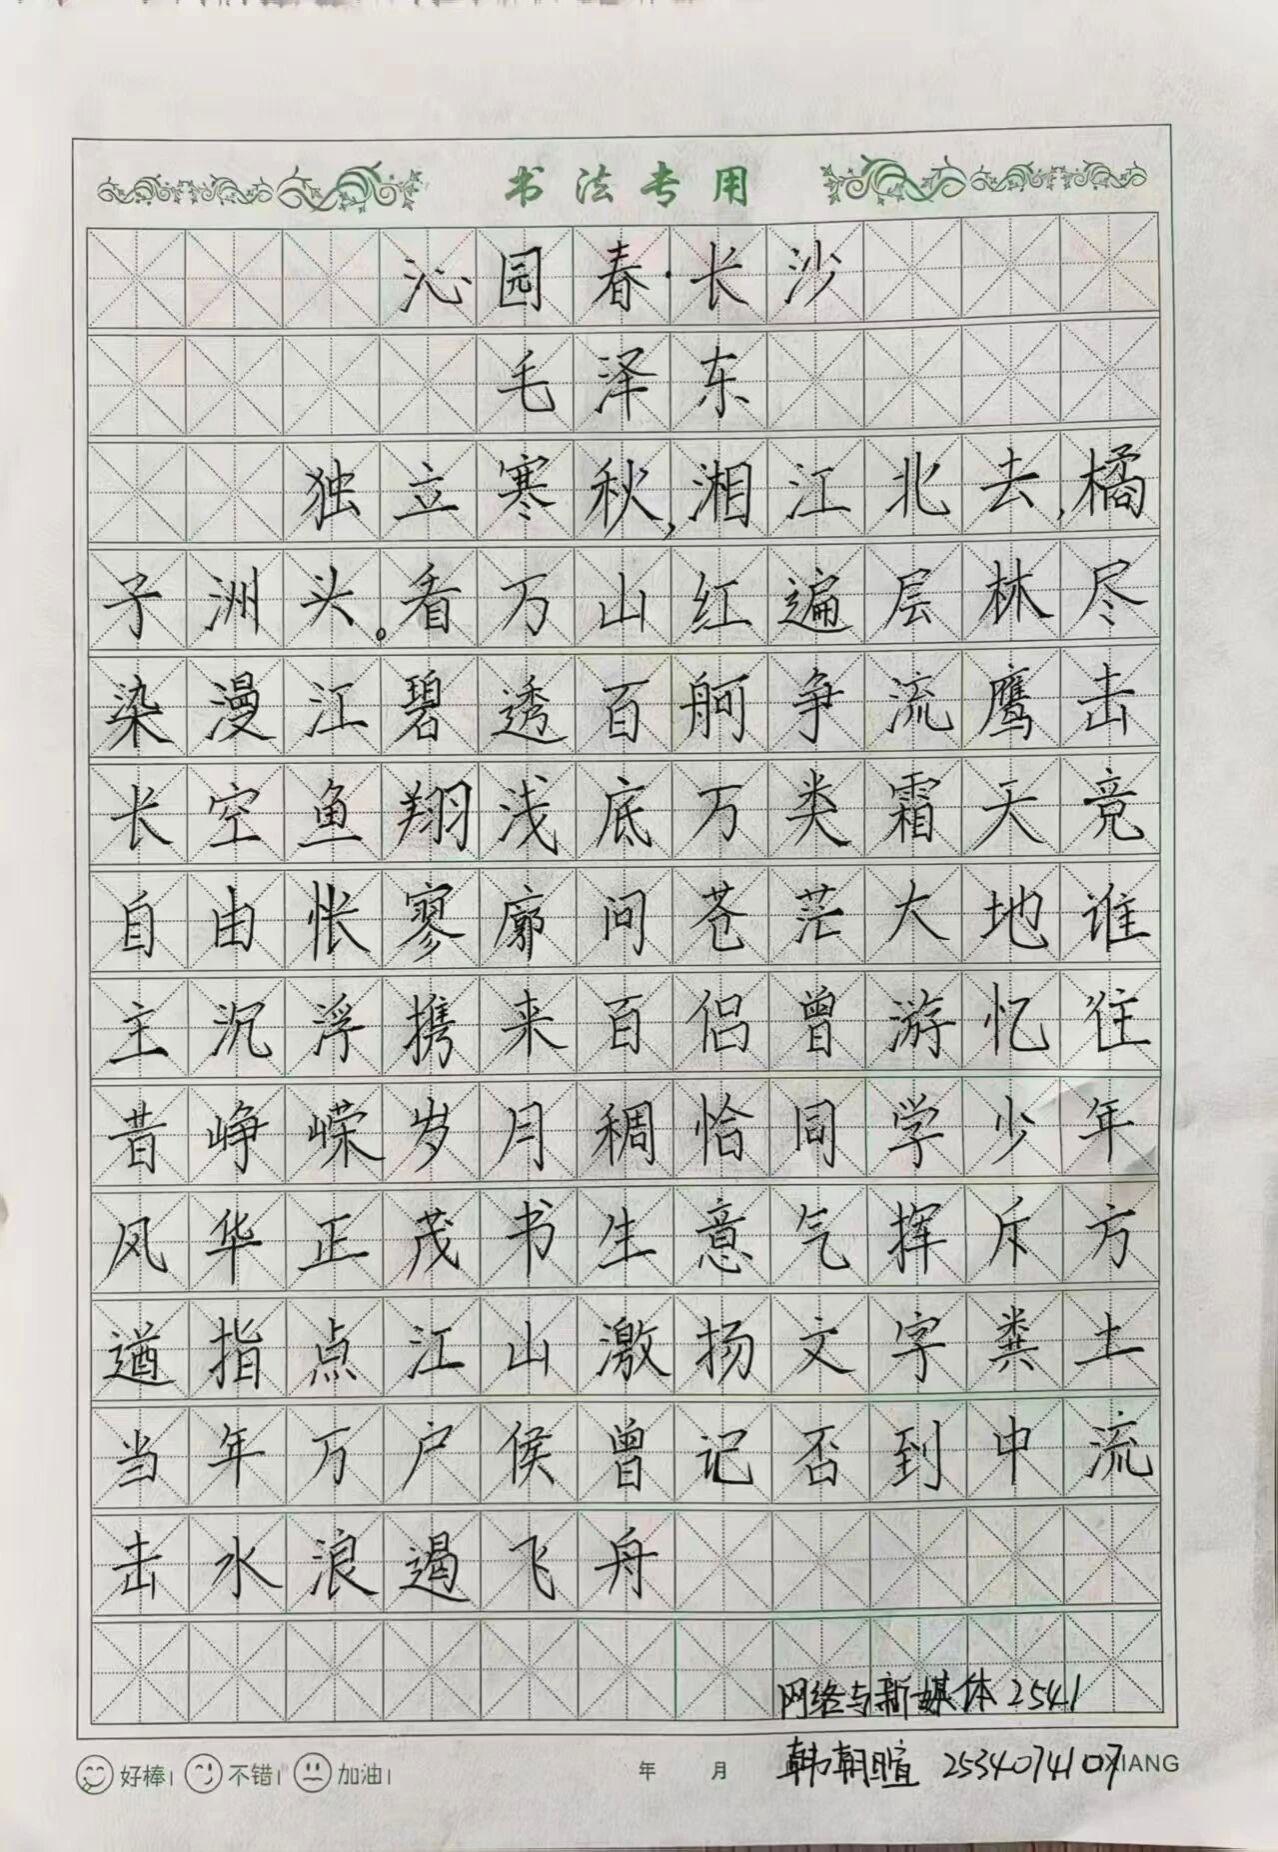 书法专用
沁园春·长沙
毛泽东
独立寒秋,湘江北去,橘
子洲头。看万山红遍层林尽
染漫江碧透百舸争流鹰击
长空鱼翔浅底万类霜天竞
自由怅寥廓问苍茫大地谁
主沉浮携来百侣曾游忆往
昔峥嵘岁月稠恰同学少年
风华正茂书生意气挥斥方
遒指点江山激扬文字粪土
当年万户侯曾记否到中流
击水浪遏飞舟
网络与新媒体2541
好棒! 不错! 加油! 年 月 韩朝暄 2534074107 XIANG